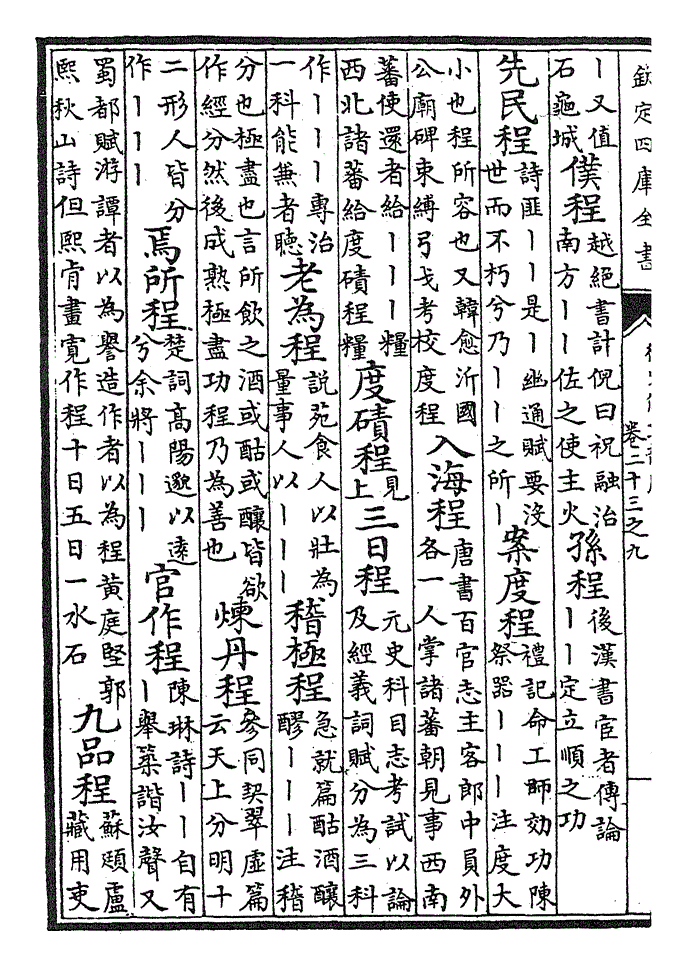 欽定四庫全書
卷二十三之九
丨又值
石龜城
僕程
越絶書計倪曰祝融治
南方丨丨佐之使主火
孫程
後漢書宦者傳論
丨丨定立順之功
先民程
詩匪丨丨是丨幽通賦要没
世而不朽兮乃丨丨之所丨
案度程
禮記命工師効功陳
祭器丨丨丨注度大
小也程所容也又韓愈沂國
公廟碑束縛弓戈考校度程
入海程
唐書百官志主客郎中員外
各一人掌諸蕃朝見事西南
蕃使還者給丨丨丨糧
西北諸蕃給度磧程糧
度磧程
見
上
三日程
元史科目志考試以論
及經義詞賦分為三科
作丨丨丨專治
一科能兼者聽
老為程
說苑食人以壯為
量事人以丨丨丨
稽極程
急就篇酤酒釀
醪丨丨丨注稽
分也極盡也言所飲之酒或酤或釀皆欲
作經分然後成熟極盡功程乃為善也
煉丹程
參同契翠虛篇
云天上分明十
二形人皆分
作丨丨丨
焉所程
楚詞高陽邈以遠
兮余將丨丨丨
官作程
陳琳詩丨丨自有
丨舉築諧汝聲又
蜀都賦游譚者以為譽造作者以為程黄庭堅郭
熙秋山詩但熙肯畫寛作程十日五日一水石
九品程
蘇頲盧
藏用吏